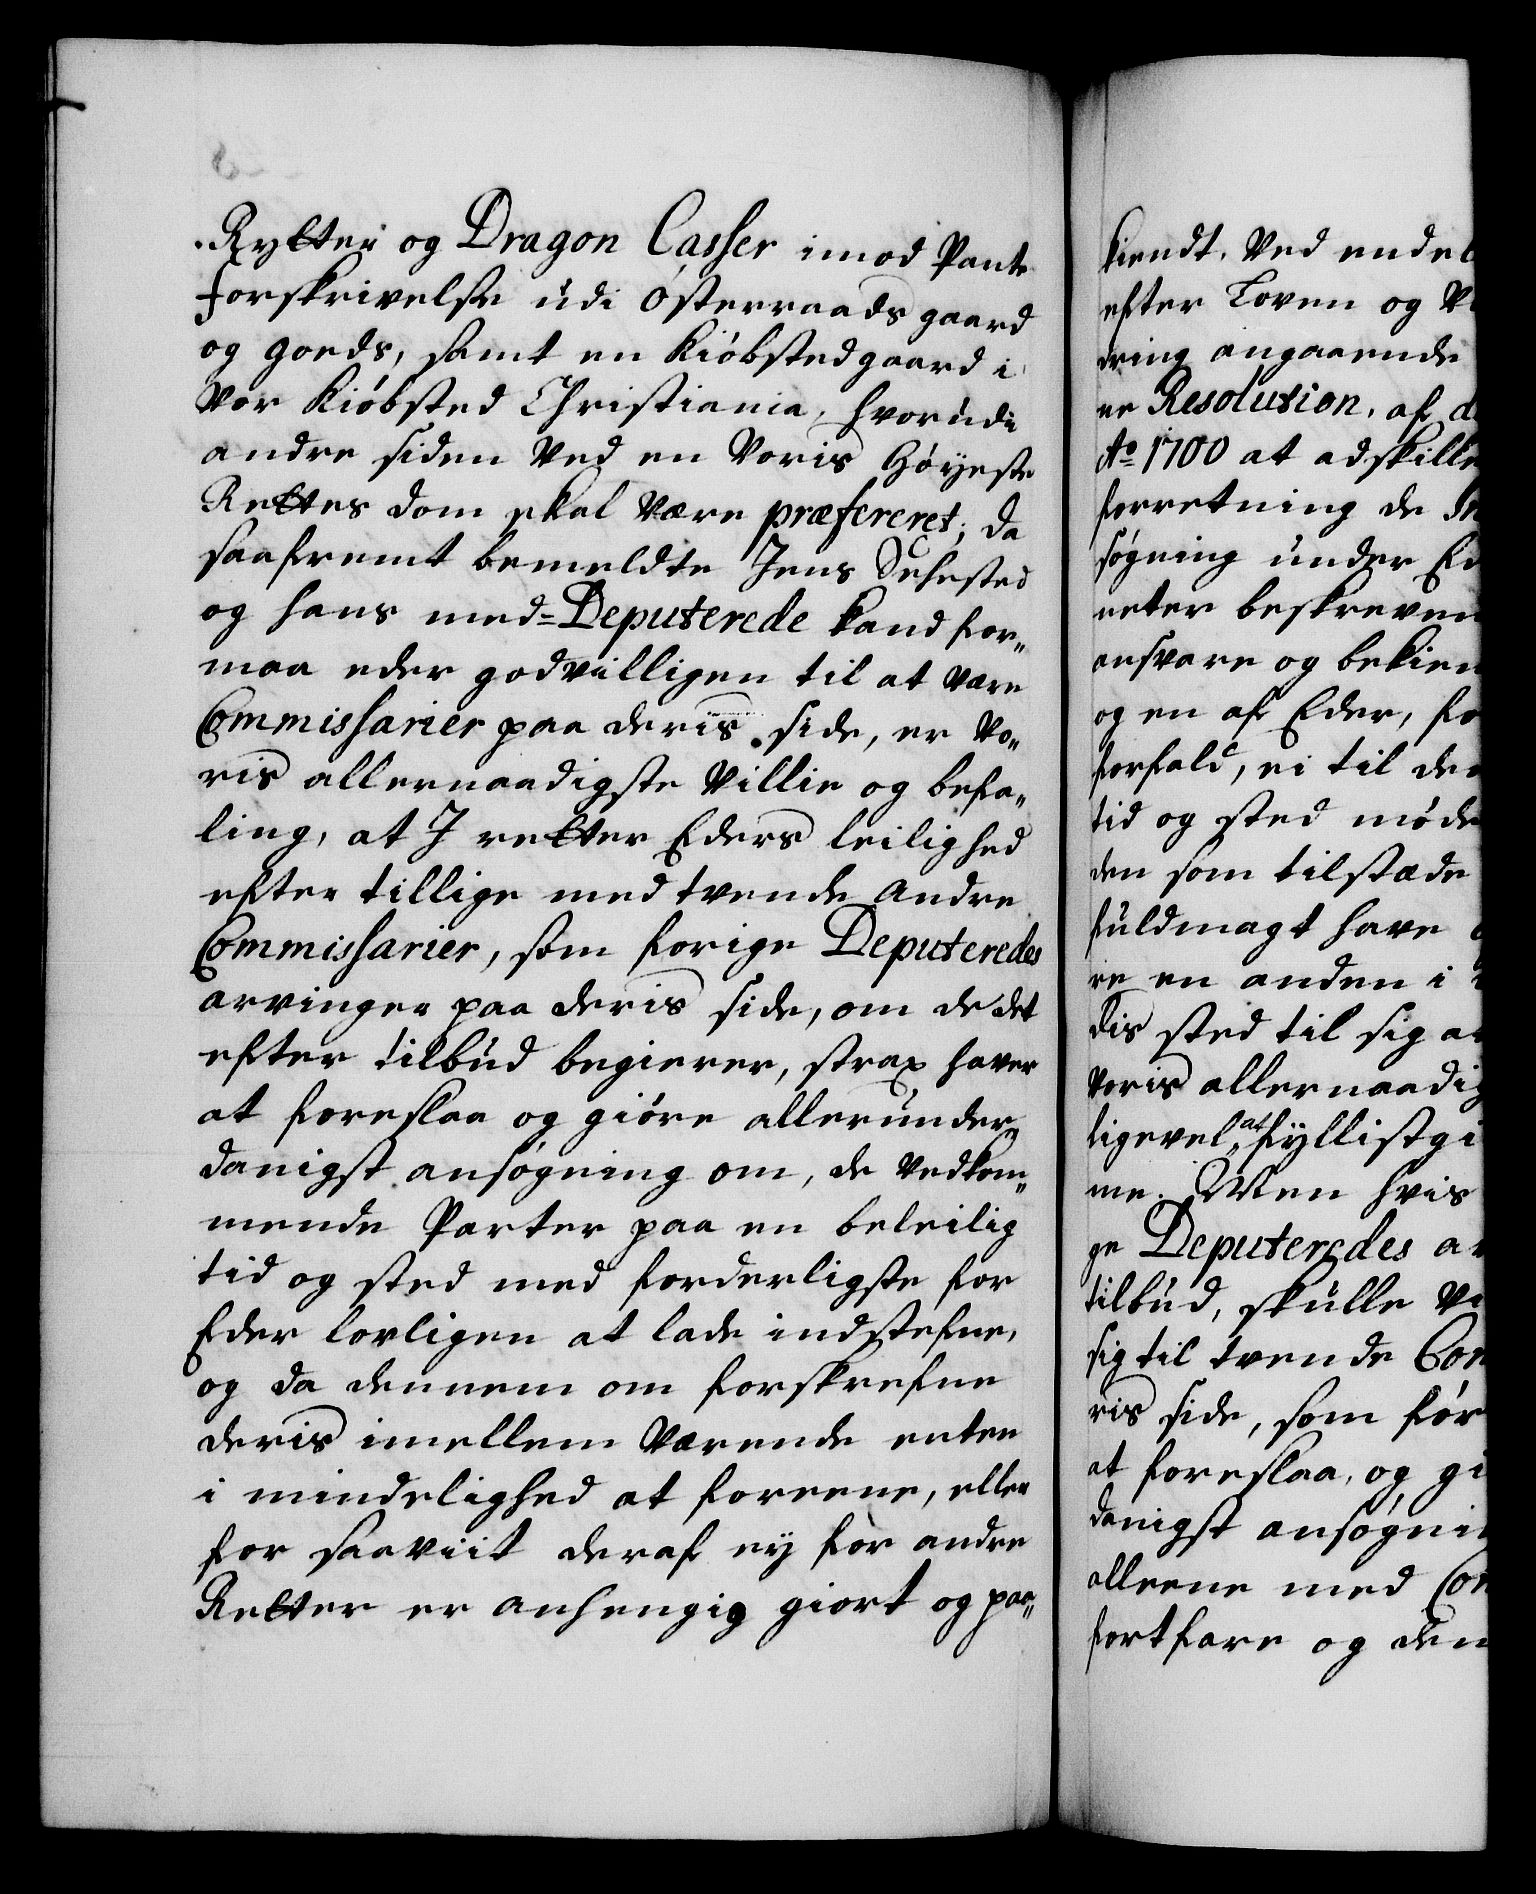 Rytter og Dragon Casser imod Pante
forskrivelse udi Østerraads gaard
og goeds, samt en Kiøbstedgaard i
Vor Kiøbsted Christiania, hvorudi
andre siden Ved en Voris Høyeste
Rettes dom skal være præfereret; da
saafremt bemeldte Jens Sehested
og hans med-Deputerede kand for„
maa eder godvilligen til at være
Commissarier paa deris side, er Vo„
ris allernaadigste Villie og befa„
ling, at I retter Eders leilighed
efter tillige med tvende andre
Commissarier, som forige Deputeredes
arvinger paa deris side, om de det
efter tilbud begierer, strax haver
at foreslaa og giøre allerunder„
danigst ansøgning om, de Vedkom„
mende Parter paa en beleilig
tid og sted med forderligste for
Eder lovligen at lade indstefne,
og da dennem om forskrefne
deris imellem Værende enten
i mindelighed at foreene, eller
for saaviit deraf ey for andre
Retter er anhengig giort og paa„
kiendt. Ved endel
efter Loven og
dring angaaende
ne Resolution, af
Ao 1700 at adskille
forretning de
søgning under
neter beskreven
ansvare og bekien
og en af Eder, fo
forfald, ei til de
tid og sted møde
den som tilstæde
fuldmagt have
re en anden i
dis sted til sig
Voris allernaadig
ligevel at fyllistgi
me. Men hvis
ge Deputeredes ar
tilbud, skulle
sig til tvende Com
ris side, som før
at foreslaa, og gi
danigst ansøgni
alleene med Com
fortfare og den